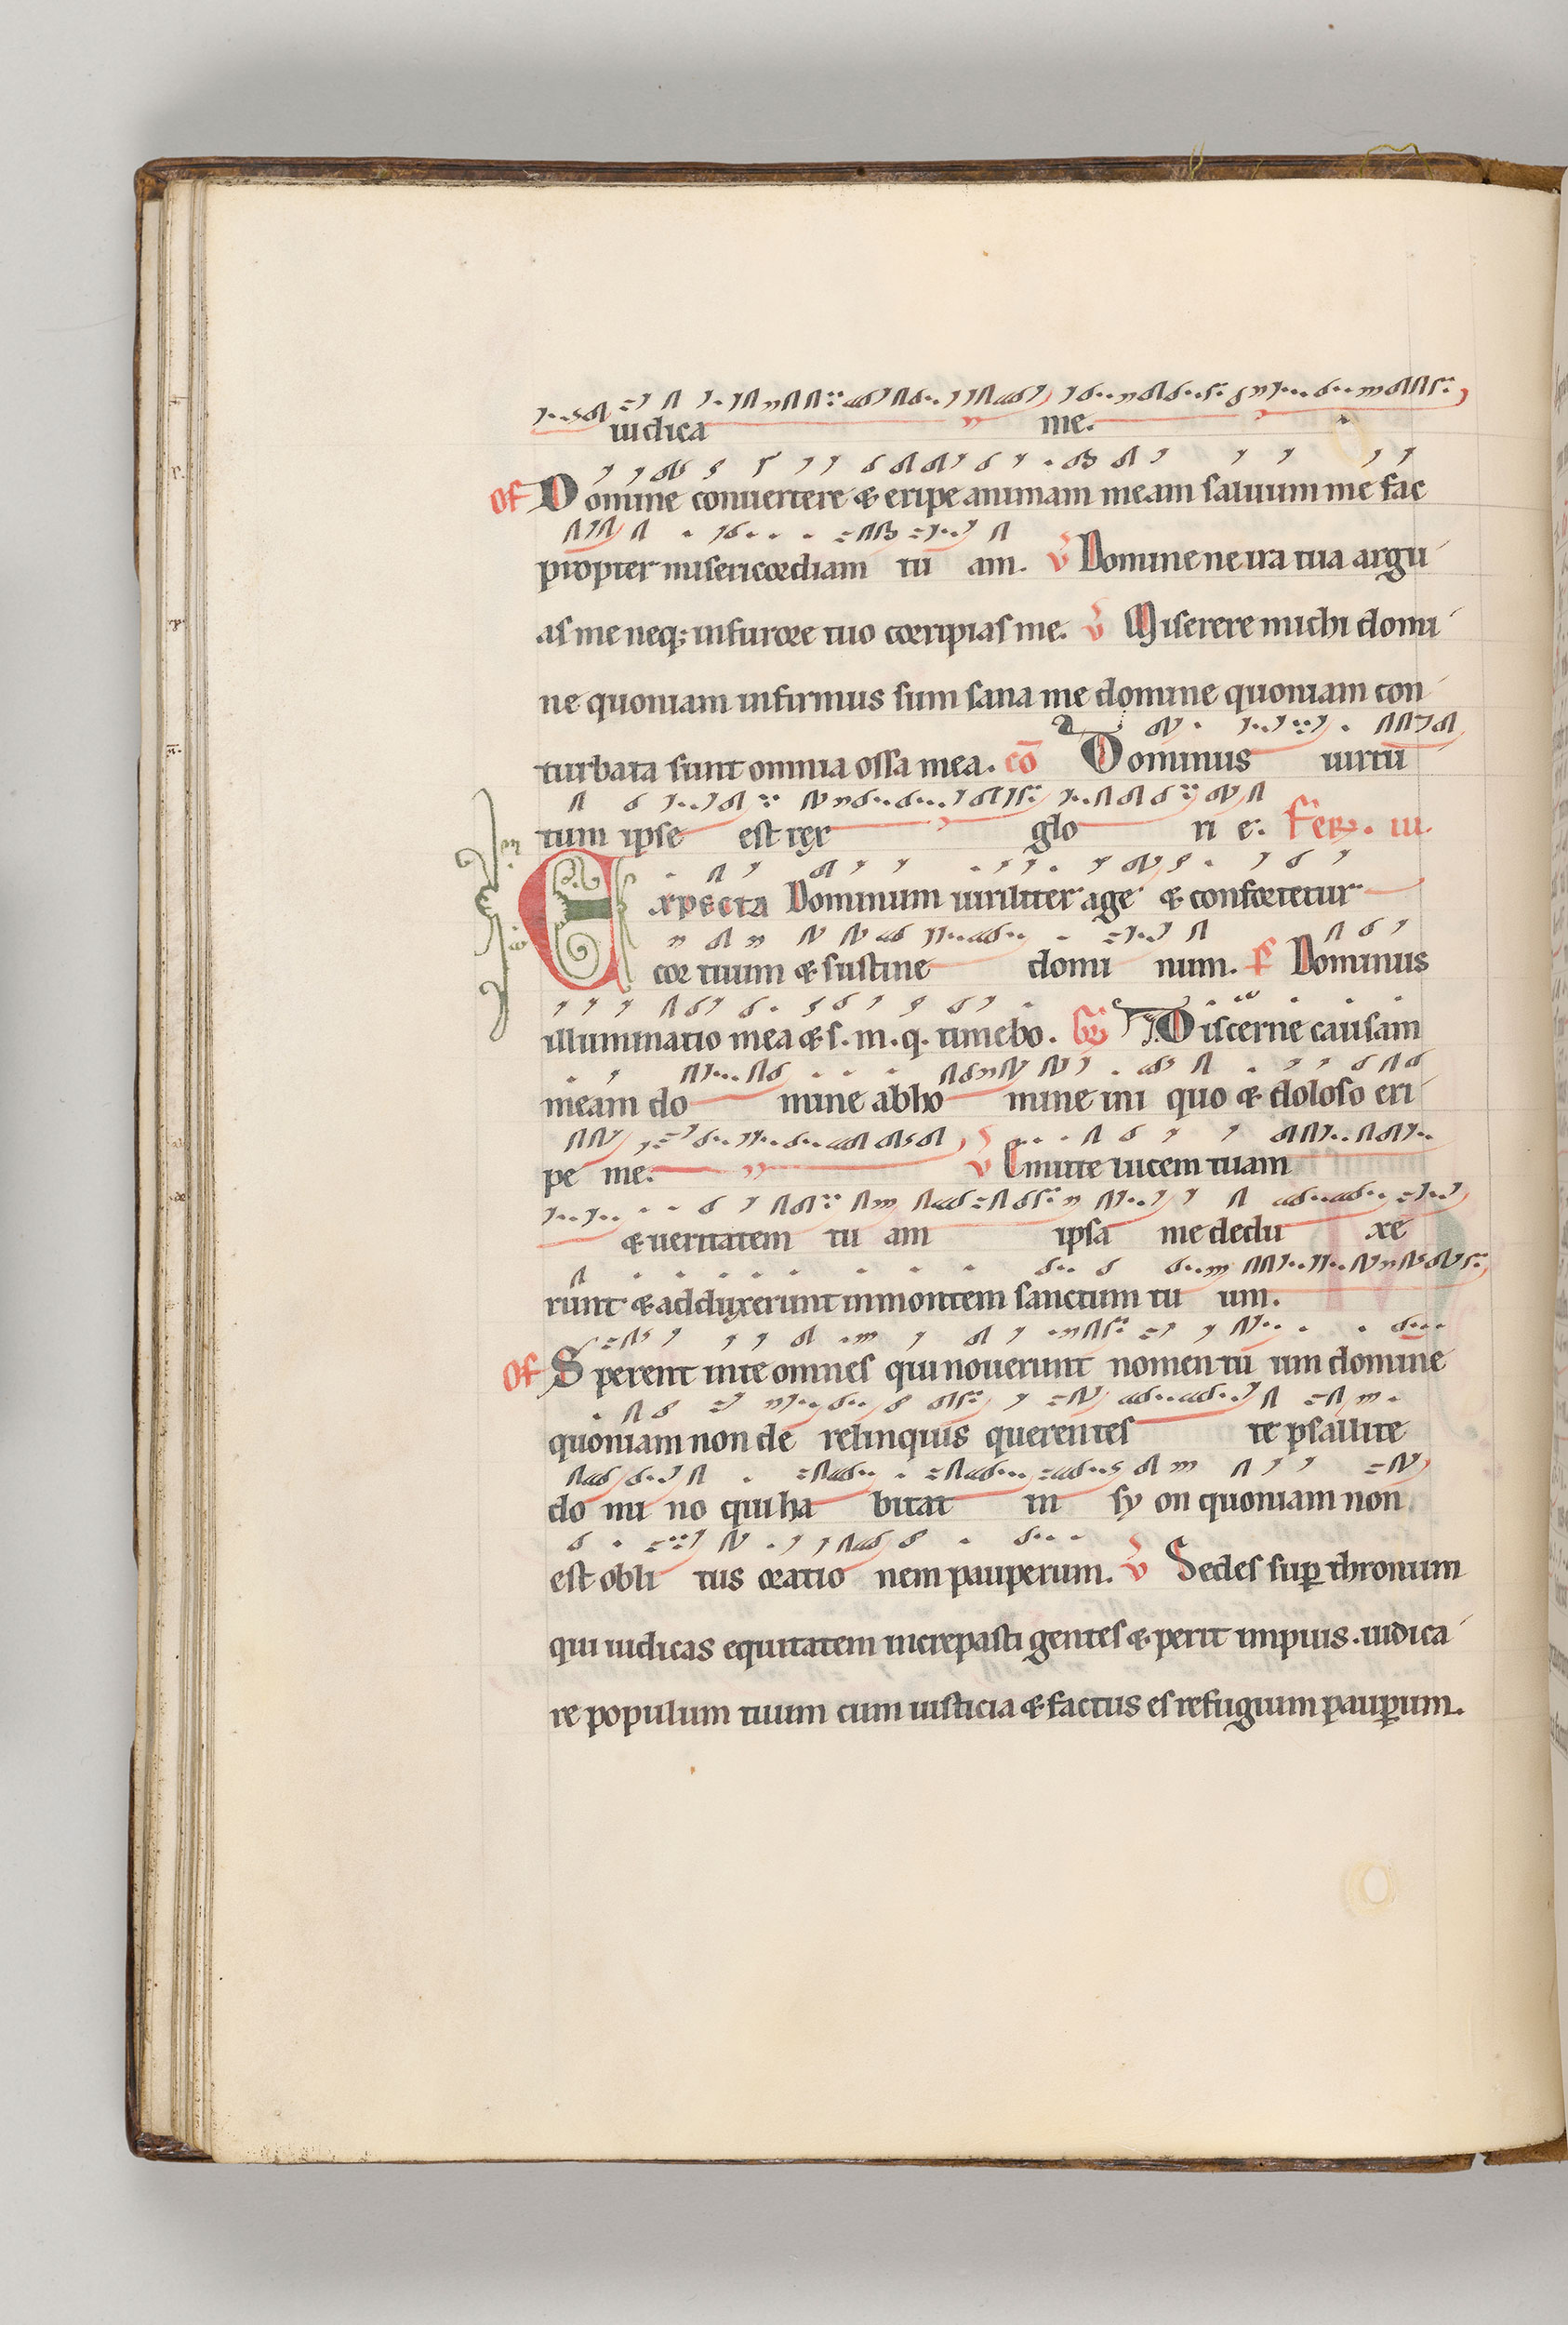 iudica me.
Of Domine conuertere & eripe animam meam saluum me fac
propter misericordiam tu am. V Domine ne ira tua argu
as me neq; in furore tuo corripias me. V Miserere michi domi
ne quoniam infirmus sum sana me domine quoniam con
turbata sunt omnia ossa mea. Cō Dominus uirtu
tum ipse est rex glo ri e. Fer. iii.
Expecta Dominum uiriliter age & confortetur
cor tuum & sustine domi num. P Dominus
illuminatio mea & s. m. q. timebo. Gr Discerne causam
meam do mine ab ho mine ini quo & doloso eri
pe me. V Emitte lucem tuam
& ueritatem tu am ipsa me dedu xe
runt & adduxerunt in montem sanctum tu um.
Of Sperent in te omnes qui nouerunt nomen tu um domine
quoniam non de relinquis querentes te psallite
do mi no qui ha bitat in sy on quoniam non
est obli tus oratio nem pauperum. V Sedes sup thronum
qui iudicas equitatem increpasti gentes & perit impius. iudica
re populum tuum cum iusticia & factus es refugium paupum.